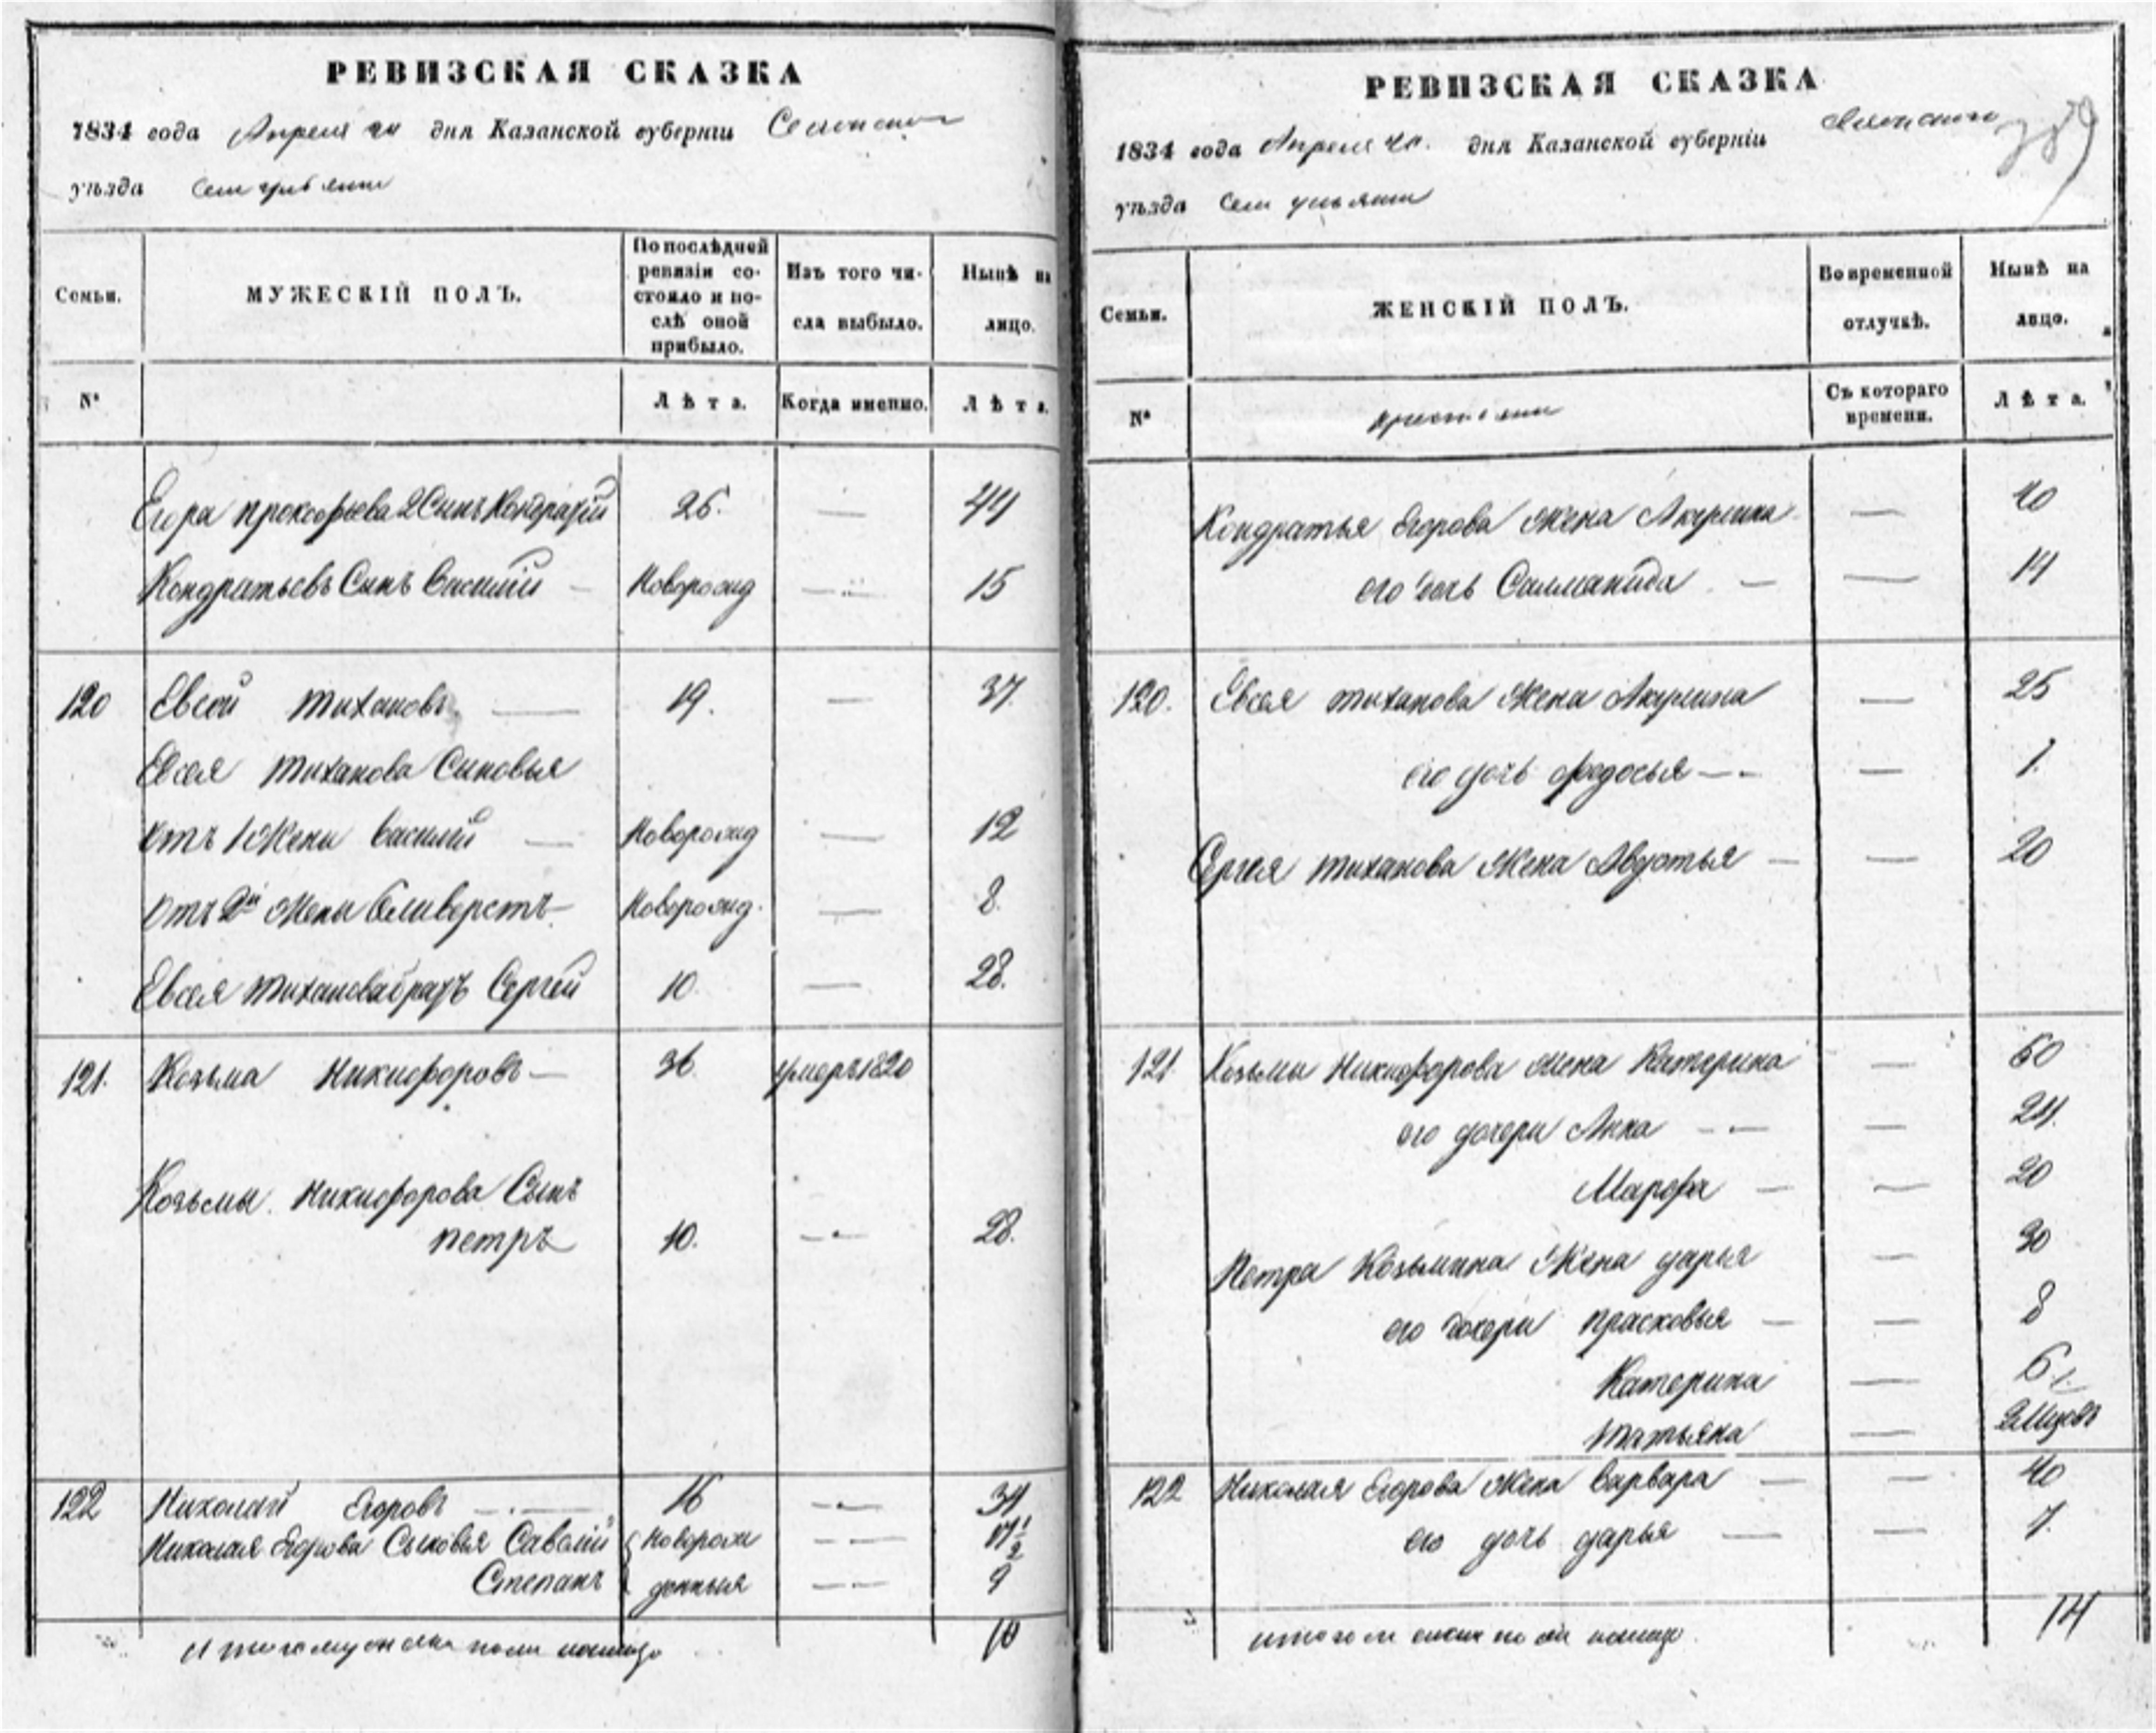 РЕВИЗСКАЯ СКАЗКА
1834 года Апреля 20 дня Казанской губерніи
уѣзда
Семьи.
МУЖЕСКІЙ ПОЛЪ.
По послѣдней ревизіи состояло и послѣ оной прибыло.
Изъ того числа выбыло.
Нынѣ на лицо.
№
Лѣта.
Когда именно.
Лѣта.
Егора прокофьева 2 Сынъ Кондратій 25. — 44
Кондратьевъ Сынъ Василій — Новорожд — 15
120 Евсей тихановъ. — 19. — 37.
Евсея тиханова Сыновья
отъ 1 Жены Василій — Новорожд — 12
отъ 2й Жены Селиверстъ — Новорожд. — 8.
Евсея тиханова братъ Сергей 10. — 28.
121. Козьма Никифоровъ — 36. умеръ 1820
Козьмы Никифорова Сынъ
петръ 10. — 28.
122 Николай Егоровъ — 16 — 34
Николая Егорова Сыновья Савелій Новорож —
Степанъ денныя — 9
10
РЕВИЗСКАЯ СКАЗКА
1834 года Апреля 20. дня Казанской губерніи
389
уѣзда
Семьи.
ЖЕНСКІЙ ПОЛЪ.
Во временной отлучкѣ.
Нынѣ на лицо.
№
Съ котораго времени.
Лѣта.
Кондратья Егорова Жена Акулина — 40
его дочь Саломанида — — 14
120. Евсея тиханова Жена Акулина — 25
его дочь федосья — — 1.
Сергея тиханова Жена Авдотья — — 20
121. Козьмы Никифорова Жена Катерина — 50
его дочери Анна — — 24.
Марфа — — 20
Петра Козьмина Жена дарья — 30
его дочери прасковья — — 8
Катерина —
татьяна —
122 Николая Егорова Жена Варвара — — 40
его дочь дарья — — 7.
14